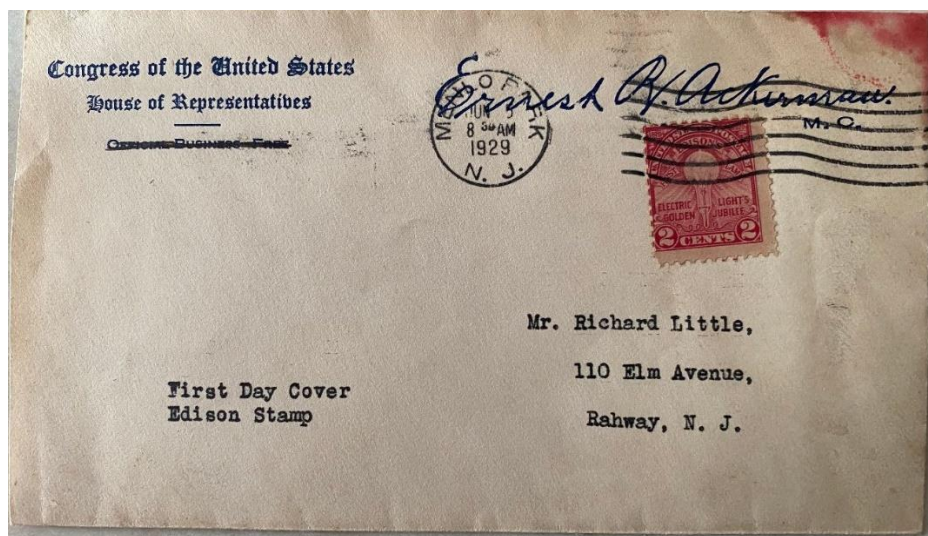 Congress of the United States
House of Representatives
OFFICIAL BUSINESS FREE
Ernest R. Ackerman.
M. C.
MENLO PARK
JUN 5
8 30 AM
1929
N. J.
UNITED STATES POSTAGE
EDISON'S
ELECTRIC LIGHT'S
GOLDEN JUBILEE
2 CENTS 2
Mr. Richard Little,
110 Elm Avenue,
Rahway, N. J.
First Day Cover
Edison Stamp